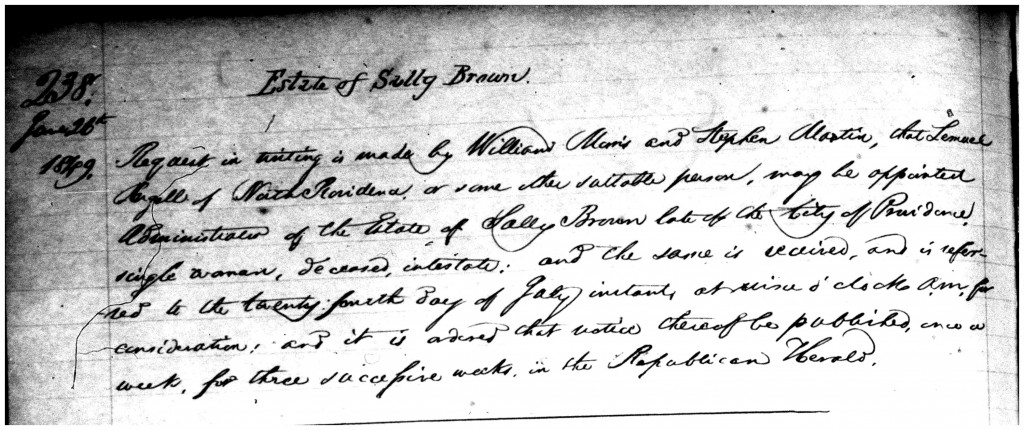 238.
Estate of Sally Brown.
June 26th
1849. Request in writing is made by William and Stephen Martin, that Lemuel
of North Providence, or some other suitable person, may be appointed
Administrator of the Estate of Sally Brown late of the City of Providence,
single woman, deceased, intestate; and the same is received, and is refer-
red to the twenty fourth day of July instant, at nine o'clock A.M. for
consideration; and it is ordered that notice thereof be published, once a
week, for three successive weeks, in the Republican Herald.